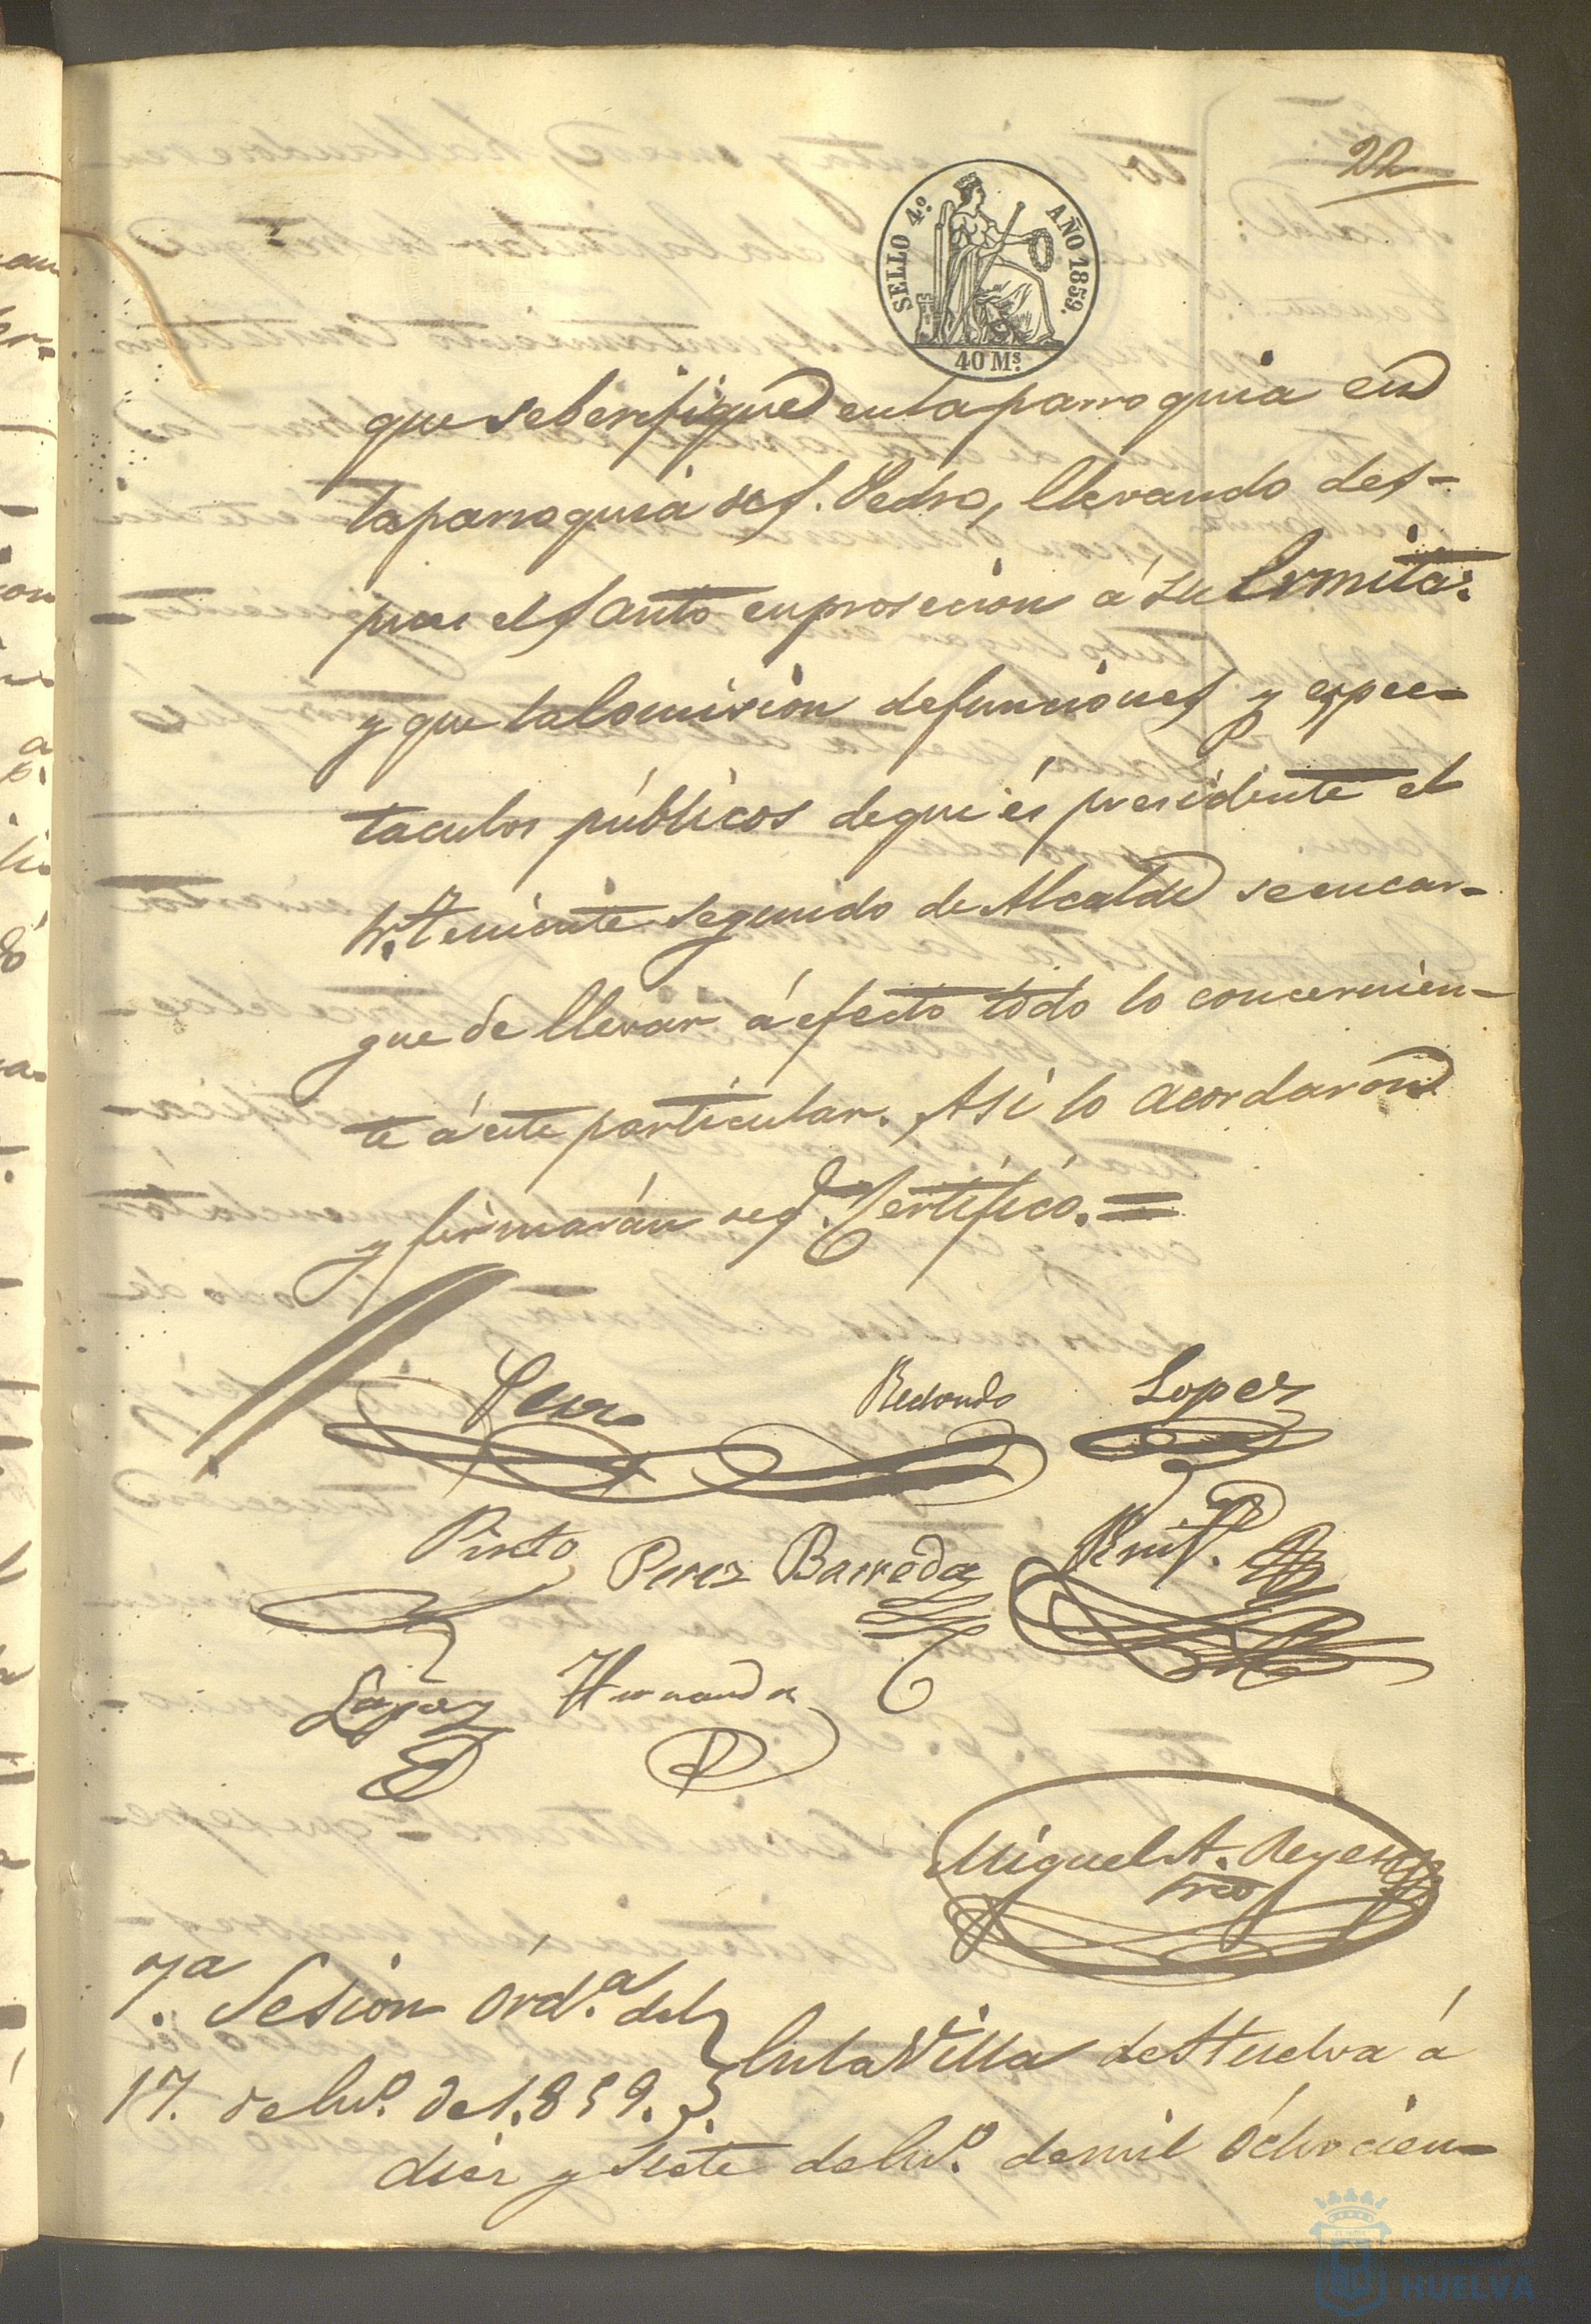 22
SELLO 4.º AÑO 1859.
40 Ms.
que se berifique en la parroquia en
la parroquia de S. Pedro, llevando des-
pues el Santo en prosecion á su Ermita:
y que la Comision de funciones y espec-
taculos públicos de que és presidente el
Sr. Teniente segundo de Alcalde se encar-
gue de llevar á efecto todo lo concernien-
te á este particular. Asi lo acordaron
y firmarán seg. Certifico. =
Redondo Lopez
Pinto Perez Barreda
Lopez Hernandez
Miguel A. Reyes
Srio
7.ª Sesion Ord.ª del
17. de En.º de 1.859.
En la Villa de Huelva á
diez y siete de En.º de mil ochocien-
HUELVA